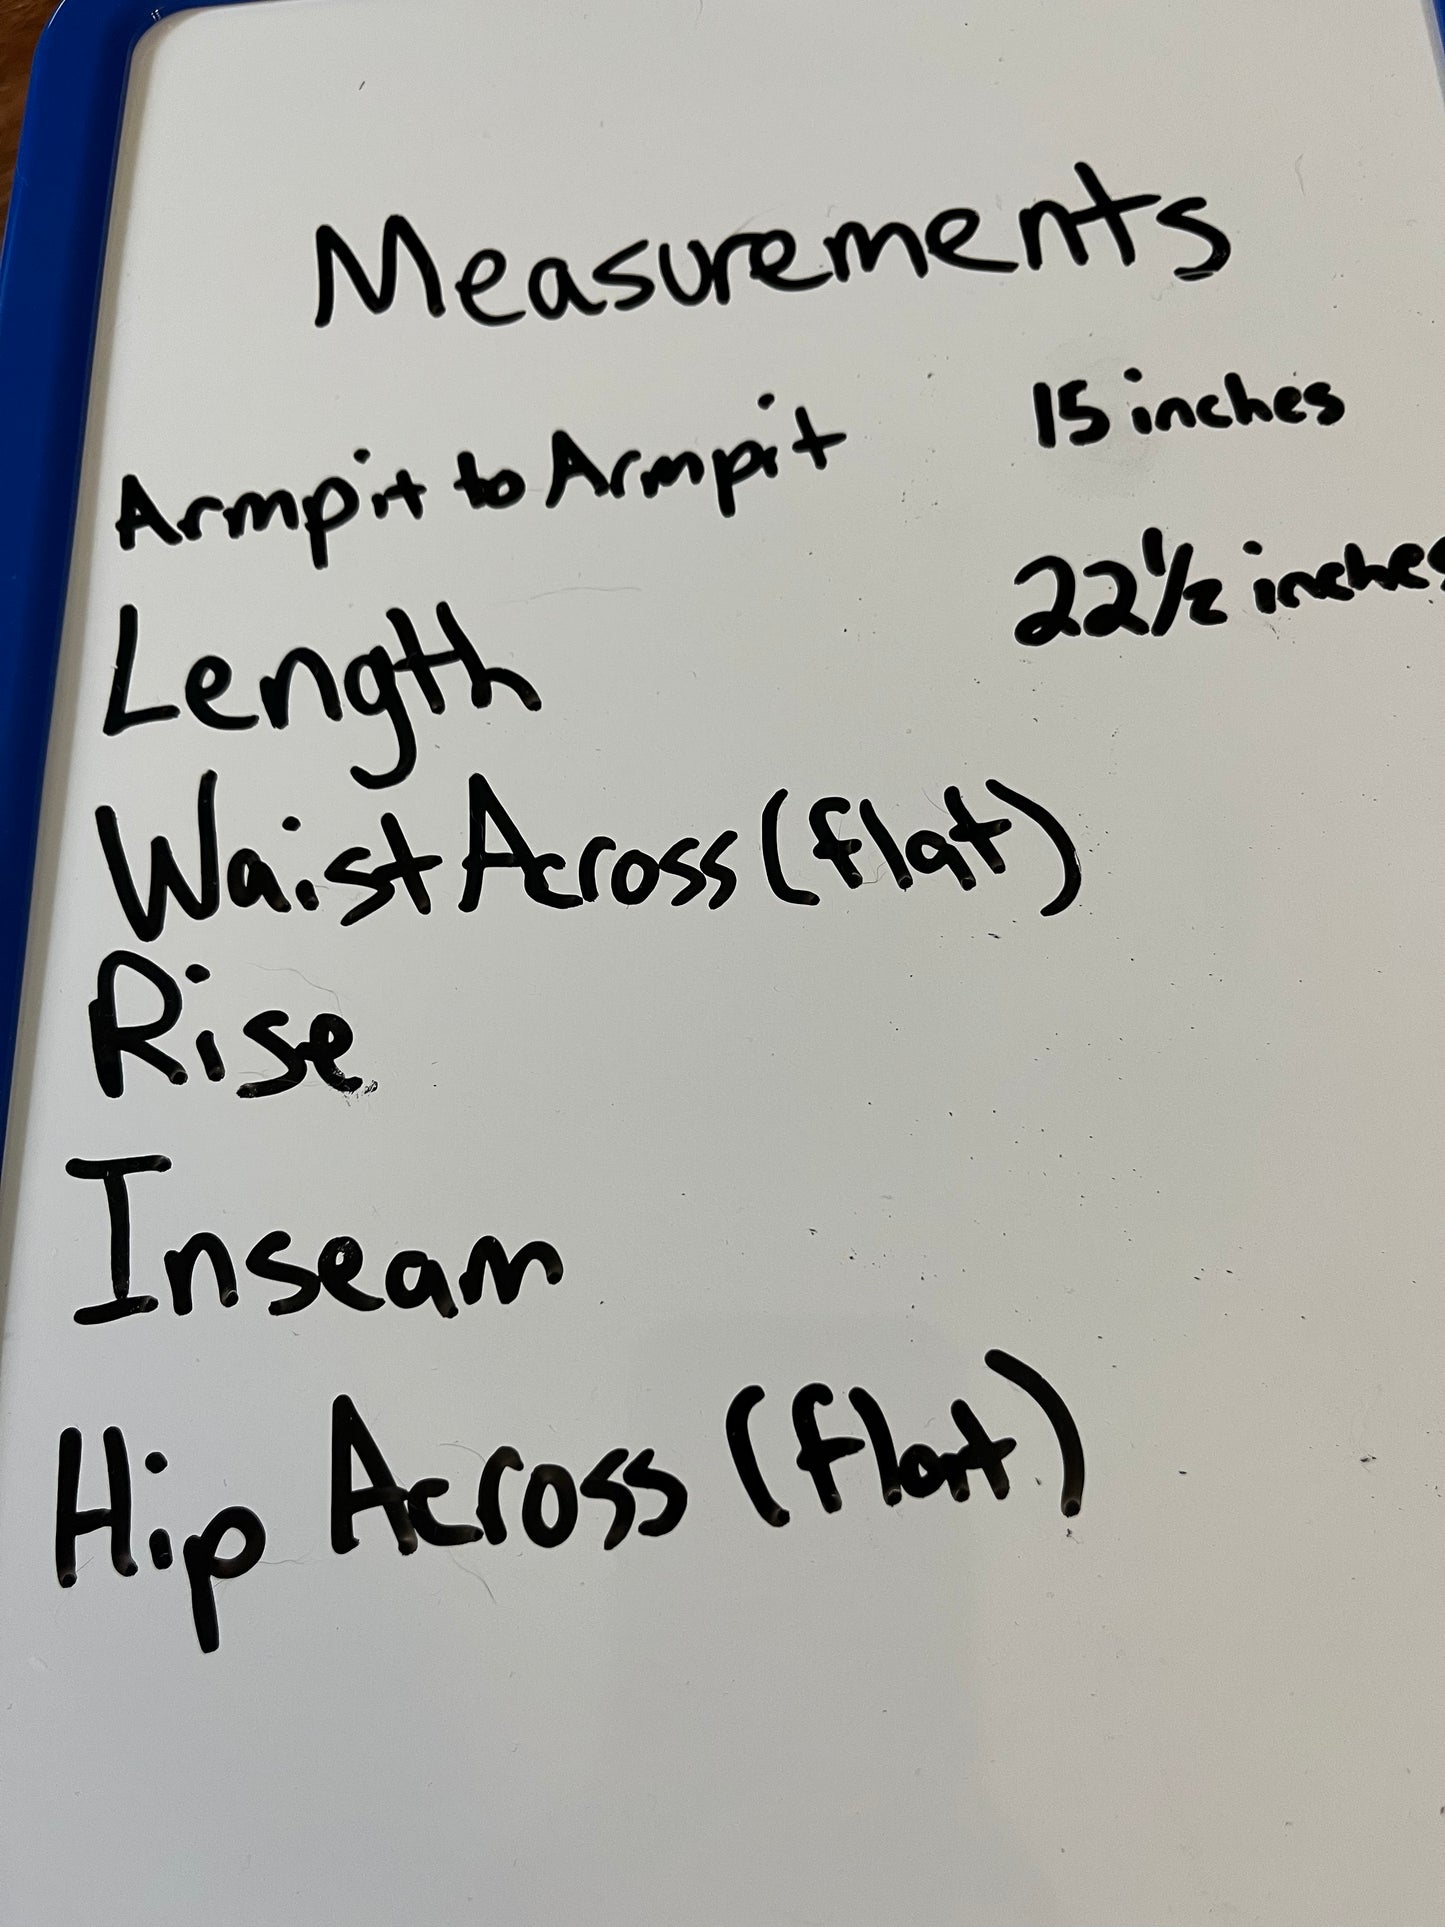 Measurements
Armpit to Armpit 15 inches
Length 22 1/2 inches
Waist Across (flat)
Rise
Inseam
Hip Across (flat)